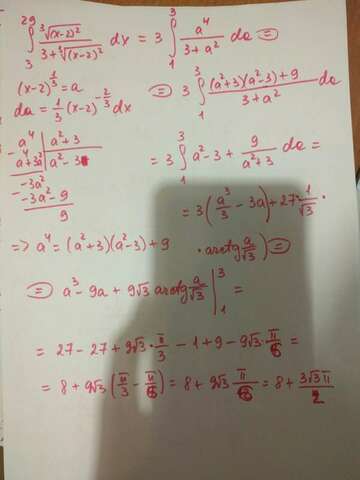 ∫₃²⁹ ∛(x-2)² / (3+∛(x-2)²) dx = 3 ∫₁³ a⁴/(3+a²) da =
(x-2)^(1/3) = a
da = 1/3 (x-2)^(-2/3) dx
= 3 ∫₁³ ((a²+3)(a²-3)+9)/(3+a²) da
a⁴ | a²+3
a⁴+3a² | a²-3
-3a²
-3a²-9
9
= 3 ∫₁³ a²-3 + 9/(a²+3) da =
= 3(a³/3 - 3a) + 27·1/√3 ·
· arctg a/√3) =
=> a⁴ = (a²+3)(a²-3)+9
= a³-9a+9√3 arctg a/√3 |₁³ =
= 27-27+9√3·π/3 -1+9-9√3·π/6 =
= 8+9√3 (π/3 - π/6) = 8+9√3 π/6 = 8+ 3√3π/2